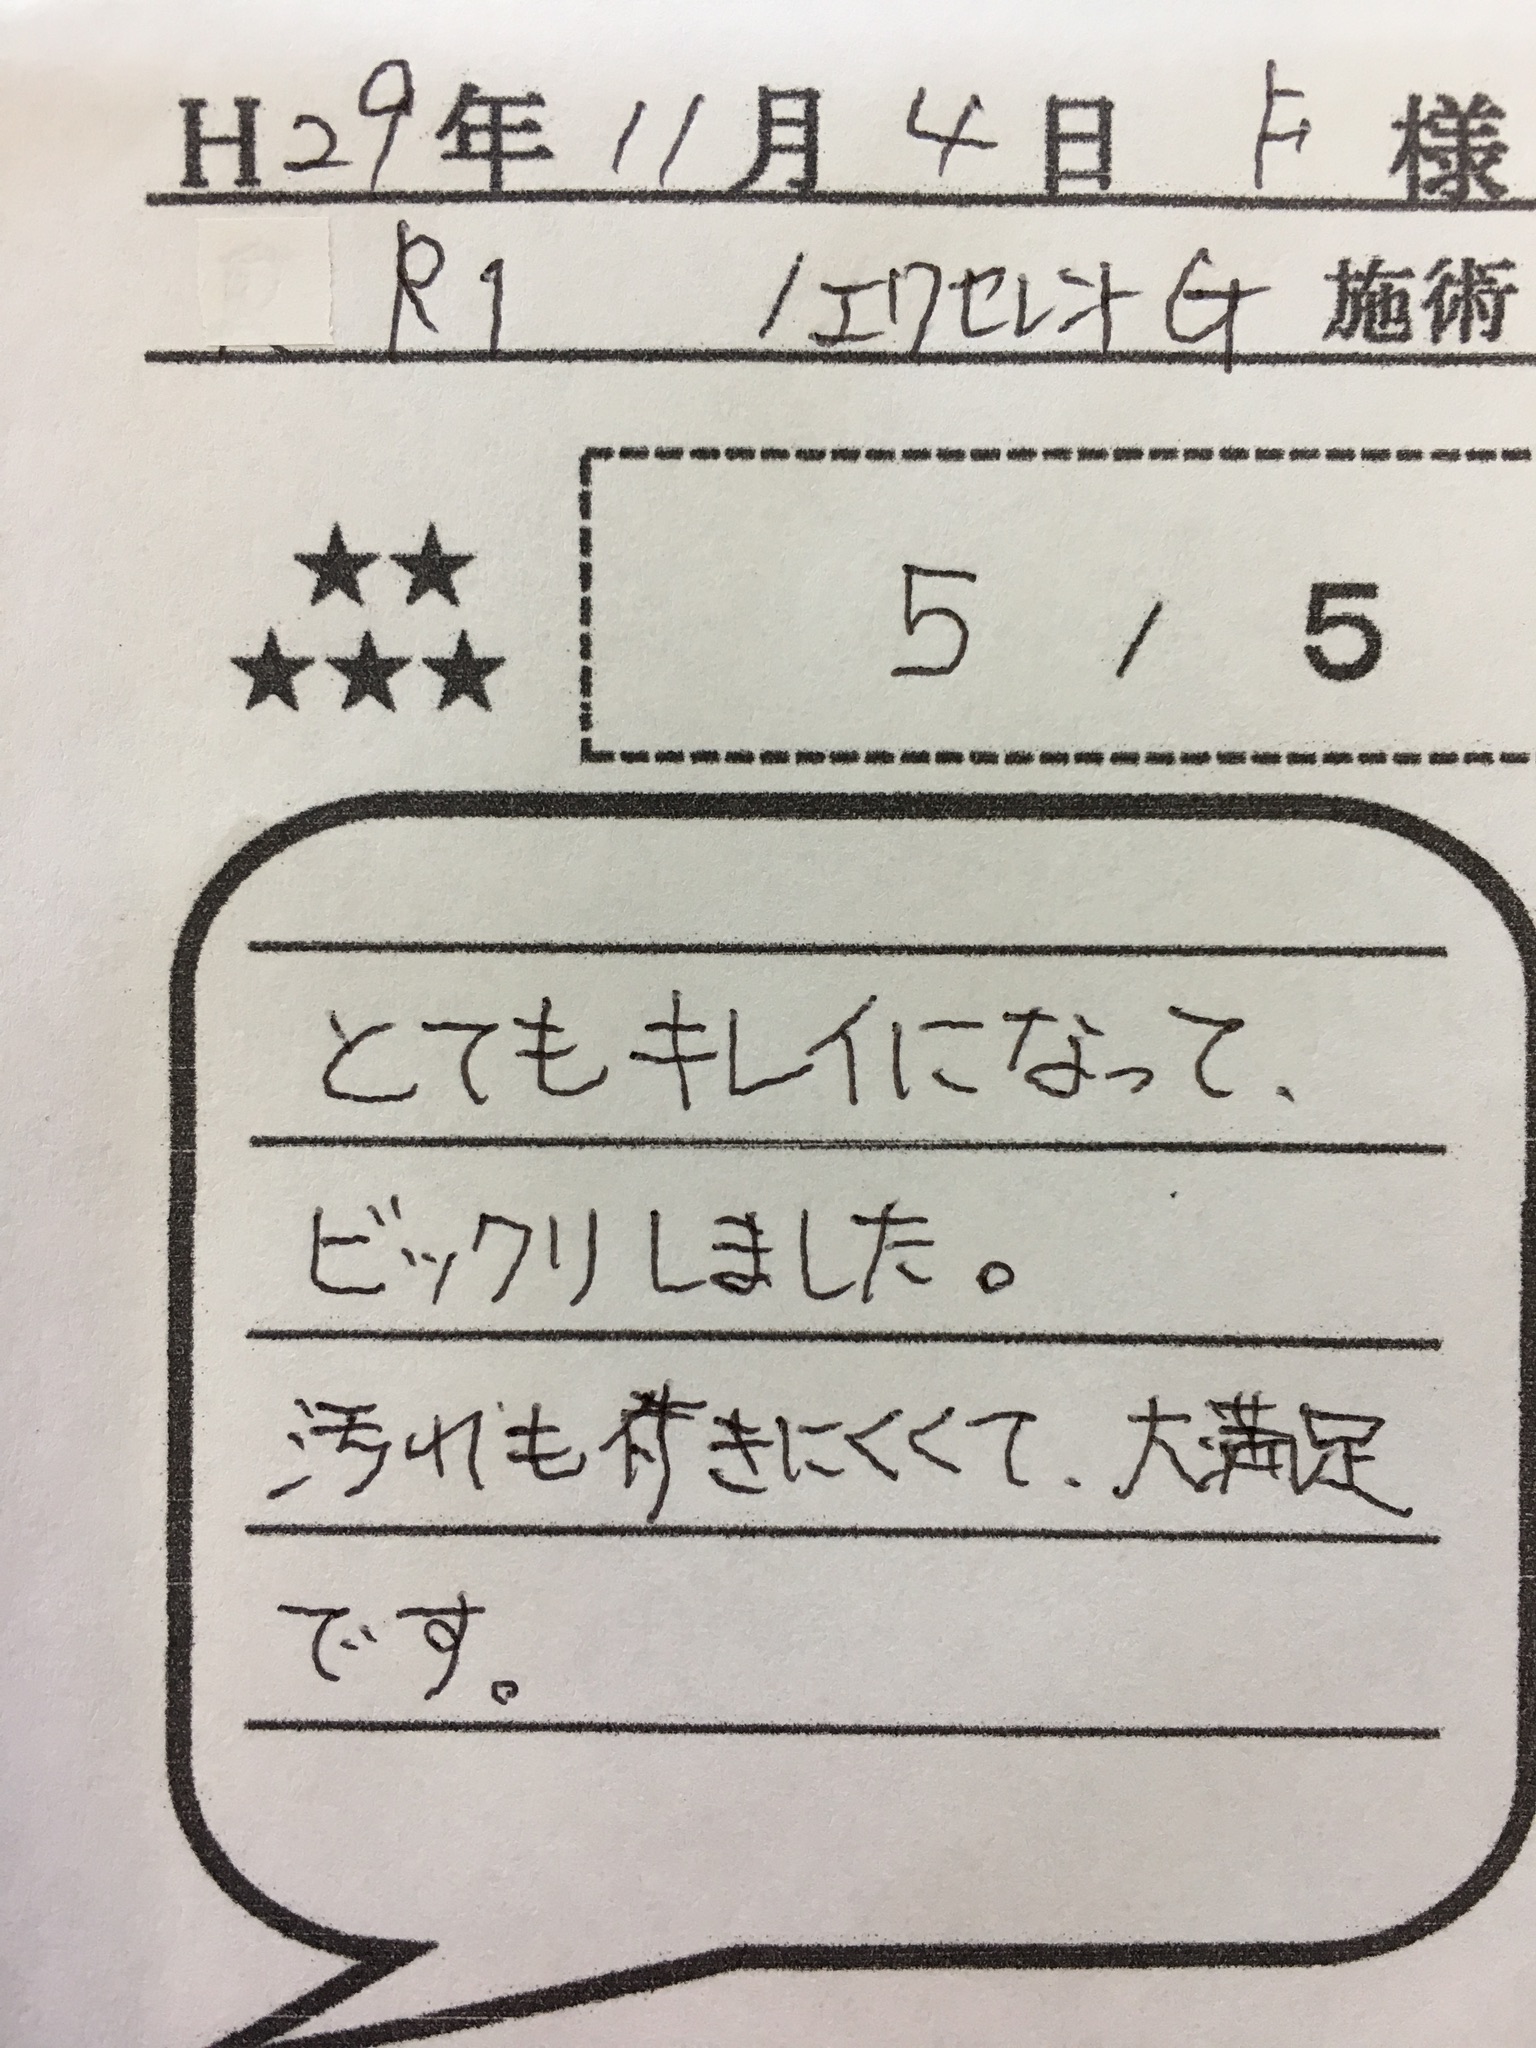 H29年 11月 4日 F様
R1 / エクセレントG 施術
★★
★★★
5 / 5
とてもキレイになって、
ビックリしました。
汚れも付きにくくて、大満足
です。